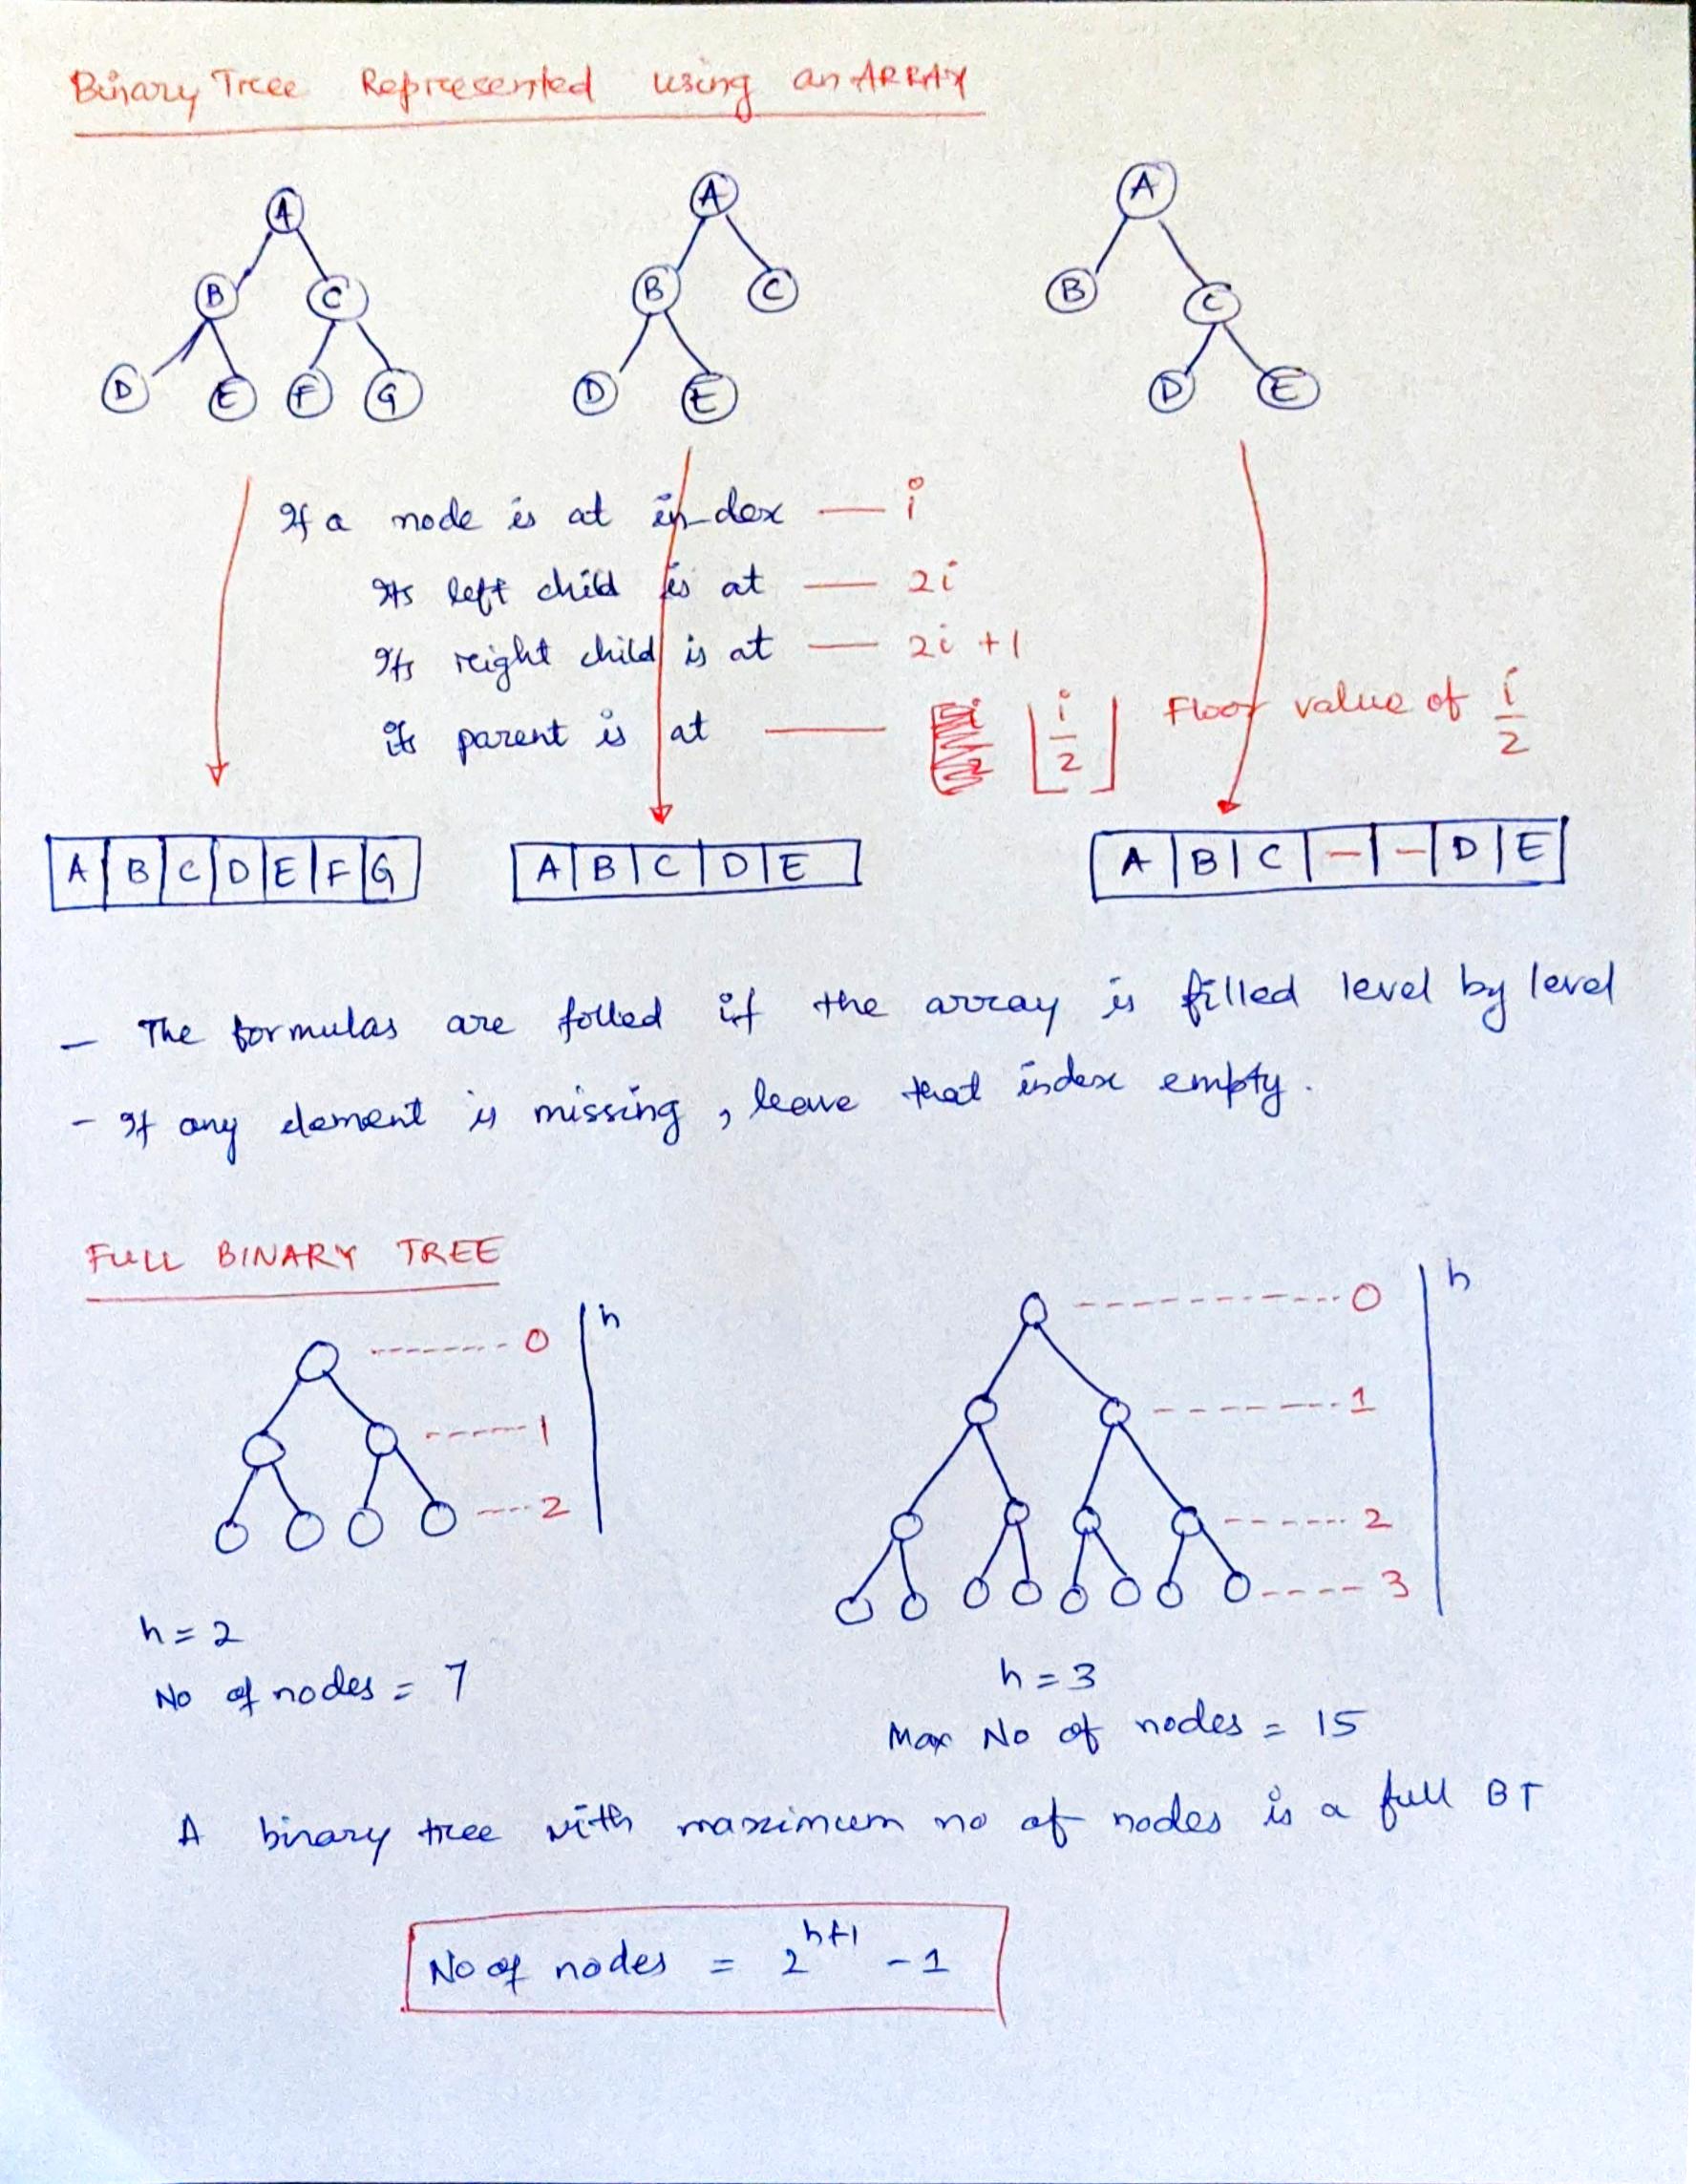 Binary Tree Represented using an ARRAY
A
B C
D E F G
A
B C
D E
A
B C
D E
If a node is at in-dex — i
Its left child is at — 2i
Its right child is at — 2i + 1
its parent is at — ⌊i/2⌋ Floor value of i/2
A B C D E F G
A B C D E
A B C - - D E
- The formulas are folled if the array is filled level by level
- If any element is missing, leave that index empty.
FULL BINARY TREE
0 h
1
2
0 h
1
2
3
h = 2
No of nodes = 7
h = 3
Max No of nodes = 15
A binary tree with maximum no of nodes is a full BT
No of nodes = 2^(h+1) - 1